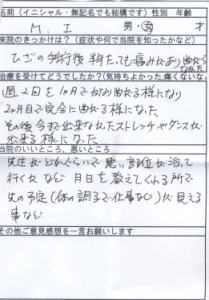 名前(イニシャル・無記名でも結構です) 性別 年齢
M. I 男・女 才
来院のきっかけは?(症状や何で当院を知ったかなど)
ひざの術行後 料たっても痛みがあり曲がら
なかった
治療を受けてどうでしたか?(気持ちよかった,痛くないな
週2回を1ヶ月でかなり曲がる様になり
2ヶ月目で完全に曲がる様になった
その後今まで出来なかったストレッチやダンスが
出来る様になった
当院のいいところ、悪いところ
先生がどれぐらいで悪い部位が治って
行くかなど 月日を教えてくれる所で
先の予定(体の調子で仕事など)が見える
事など
その他ご意見感想を一言お願いします